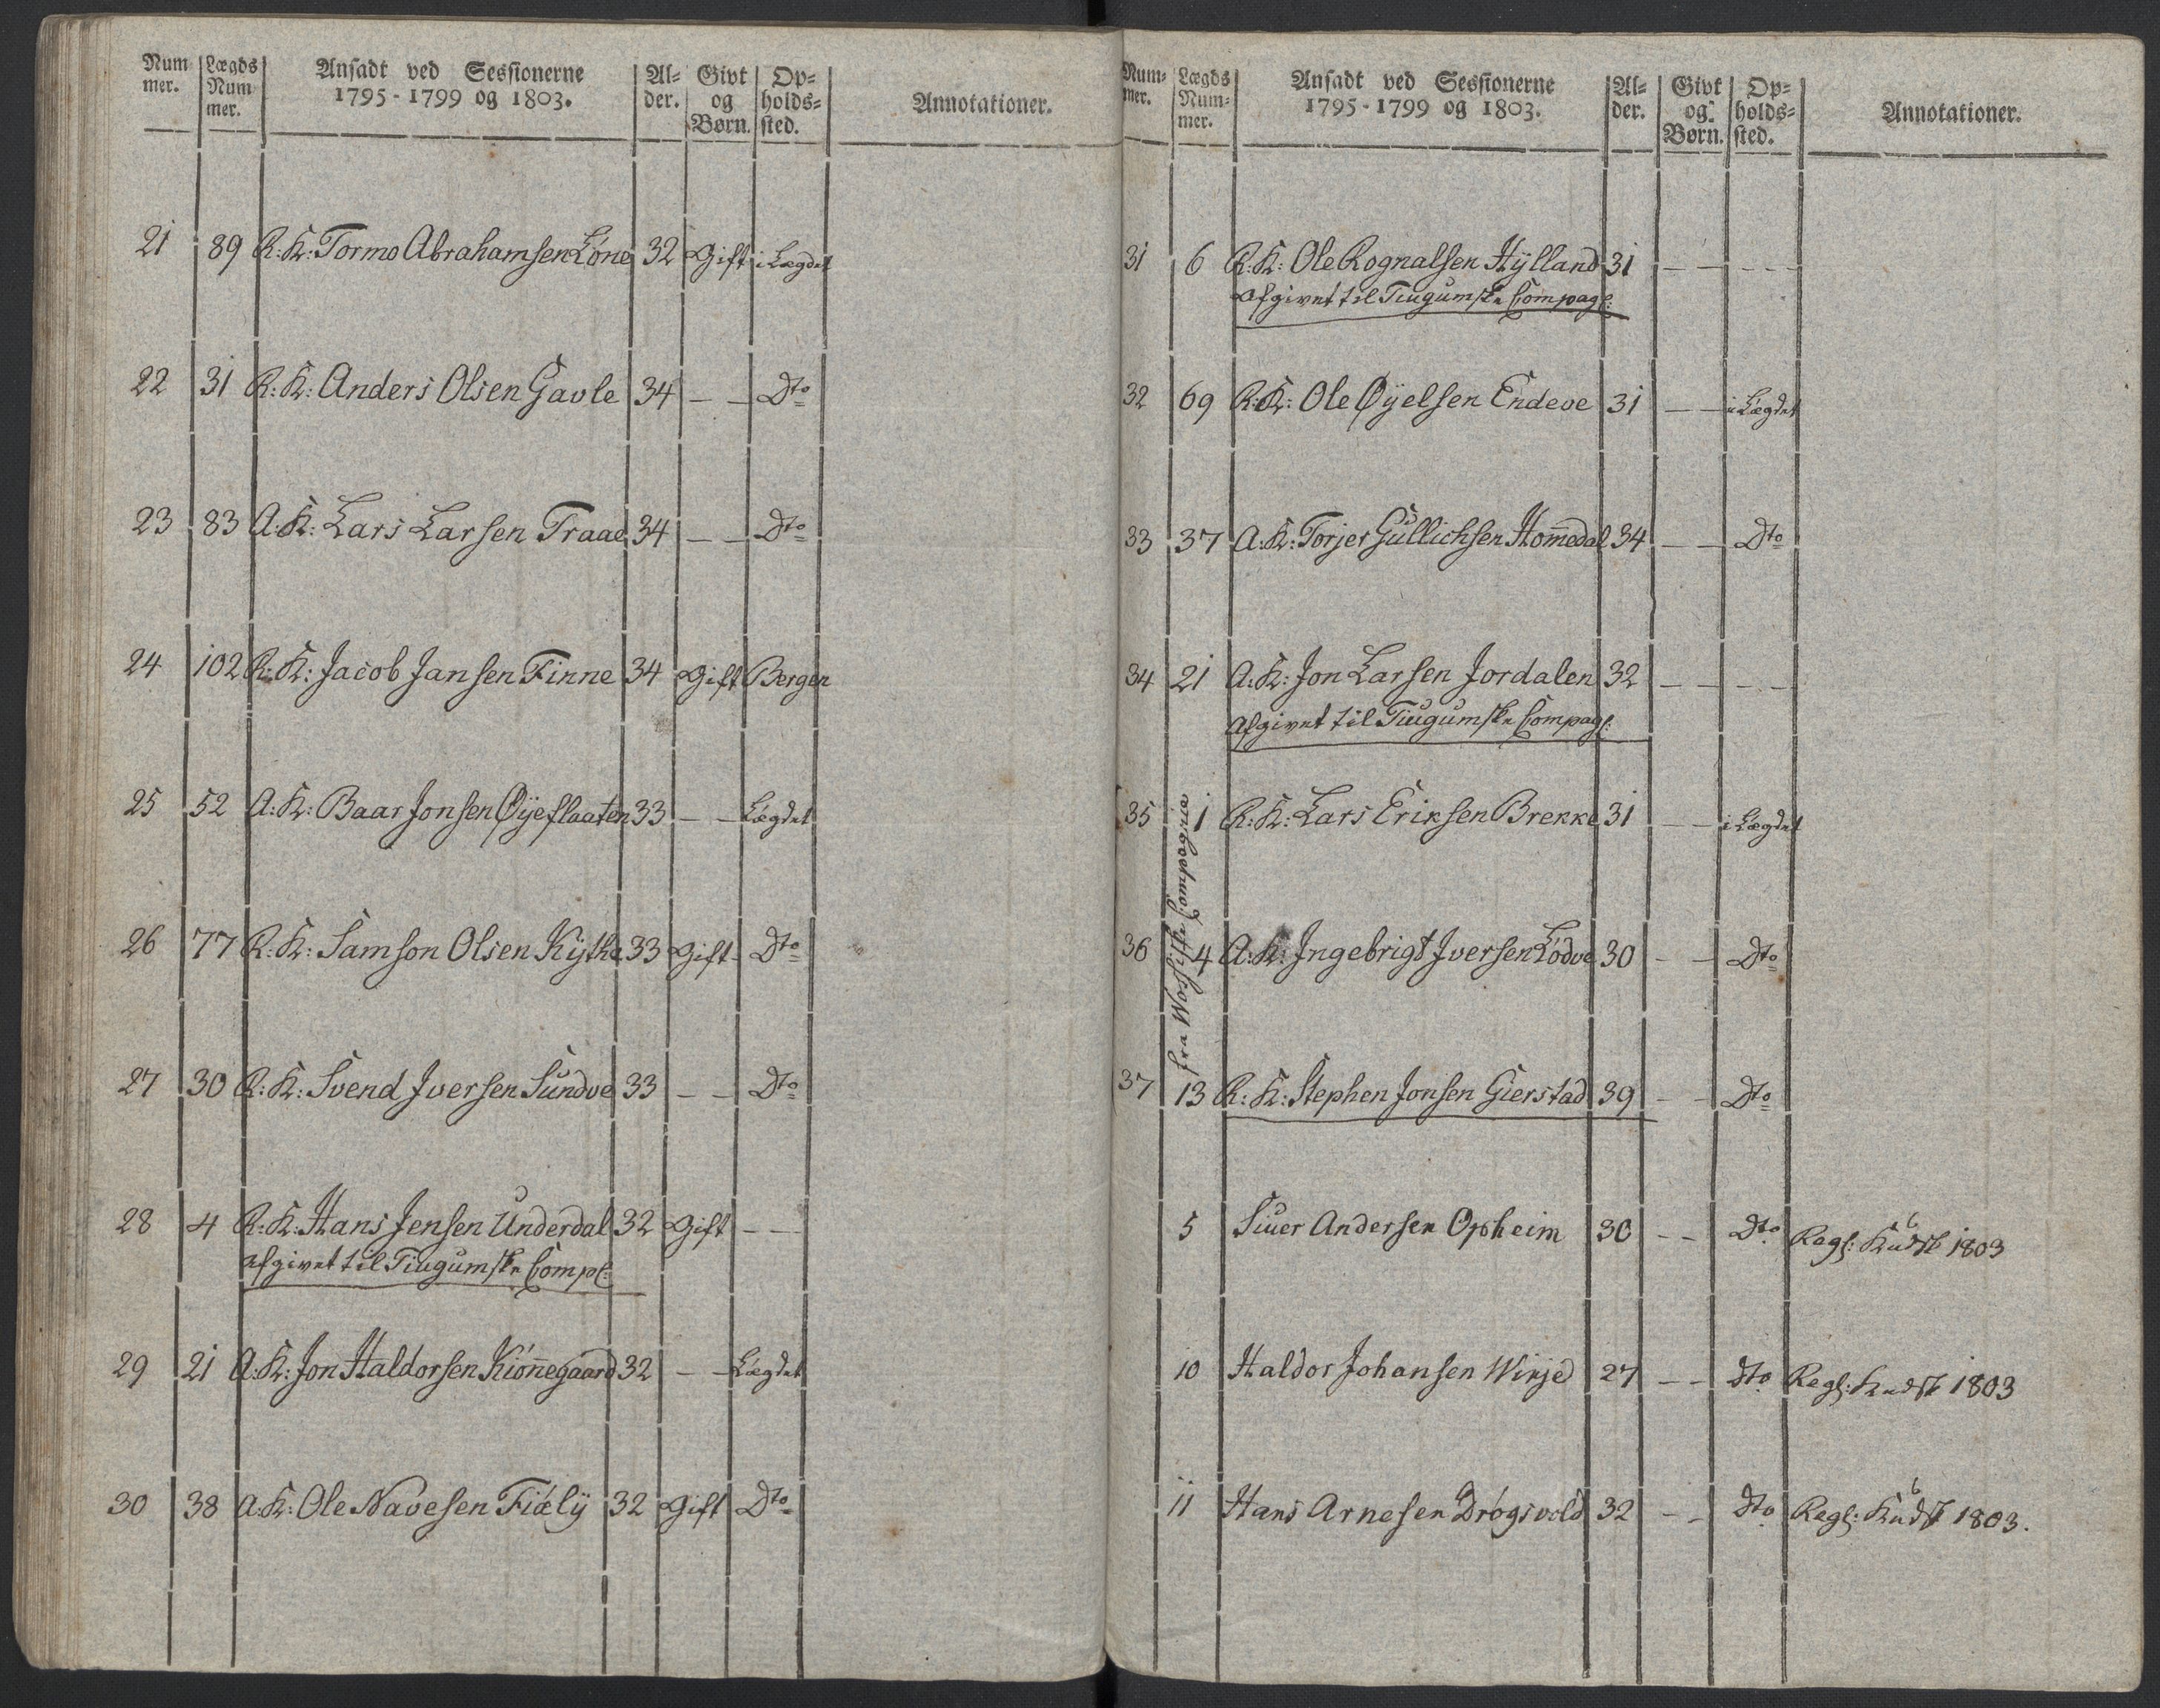 Num mer. Lægds Num mer. Ansadt ved Sessionerne 1795-1799 og 1803. Al= der. Givt og Børn. Op= holds= sted. Annotationer.
21 89 R:K: Tormo Abrahamsen Løne 32 Gift i Lægdet
22 31 R:K: Anders Olsen Gavle 34 — — Dto
23 83 A:K: Lars Larsen Traae 34 — — Dto
24 102 R:K: Jacob Jansen Finne 34 Gift Bergen
25 52 A:K: Baar Jonsen Øyeflaaten 33 — — Lægdet
26 77 R:K: Samson Olsen Kythe 33 Gift Dto
27 30 R:K: Svend Iversen Sundve 33 — — Dto
28 4 R:K: Hans Jensen Underdal 32 Gift — —
afgivet til Tiugumske Comp:
29 21 A:K: Jon Haldorsen Kiønnegaard 32 — — Lægdet
30 38 A:K: Ole Navesen Fiæly 32 Gift Dto
Num= mer. Lægds Num= mer. Ansadt ved Sessionerne 1795-1799 og 1803. Al= der. Givt og Børn. Op= holds= sted. Annotationer.
31 6 R:K: Ole Rognalsen Hylland 31 — — — — —
Afgivet til Tiugumske Compag:
32 69 R:K: Ole Øyelsen Endeve 31 — — i Lægdet
33 37 A:K: Torjer Gullichsen Hom̅edal 34 — — Dto
34 21 A:K: Jon Larsen Jordalen 32 — — — — —
Afgivet til Tiugumske Compag:
fra Wossiske Compagnie
35 1 R:K: Lars Eriksen Brekke 31 — — i Lægdet
36 4 A:K: Ingebrigt Iversen Lødve 30 — — Dto
37 13 R:K: Stephen Jonsen Gierstad 39 — — Dto
5 Siuer Andersen Opheim 30 — — Dto 1803
10 Haldor Johansen Winje 27 — — Dto 1803
11 Hans Arnesen Drøgsvold 32 — — Dto 1803.